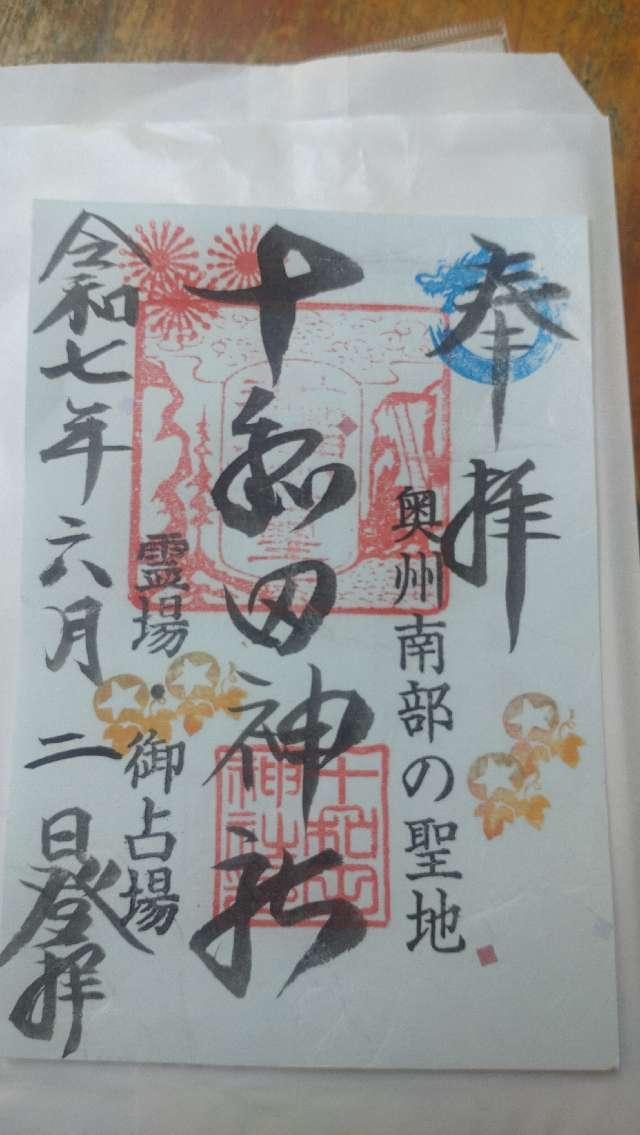 奉拝
奥州南部の聖地
十和田神社
十和田
神社
霊場・御占場
令和七年六月二日登拝